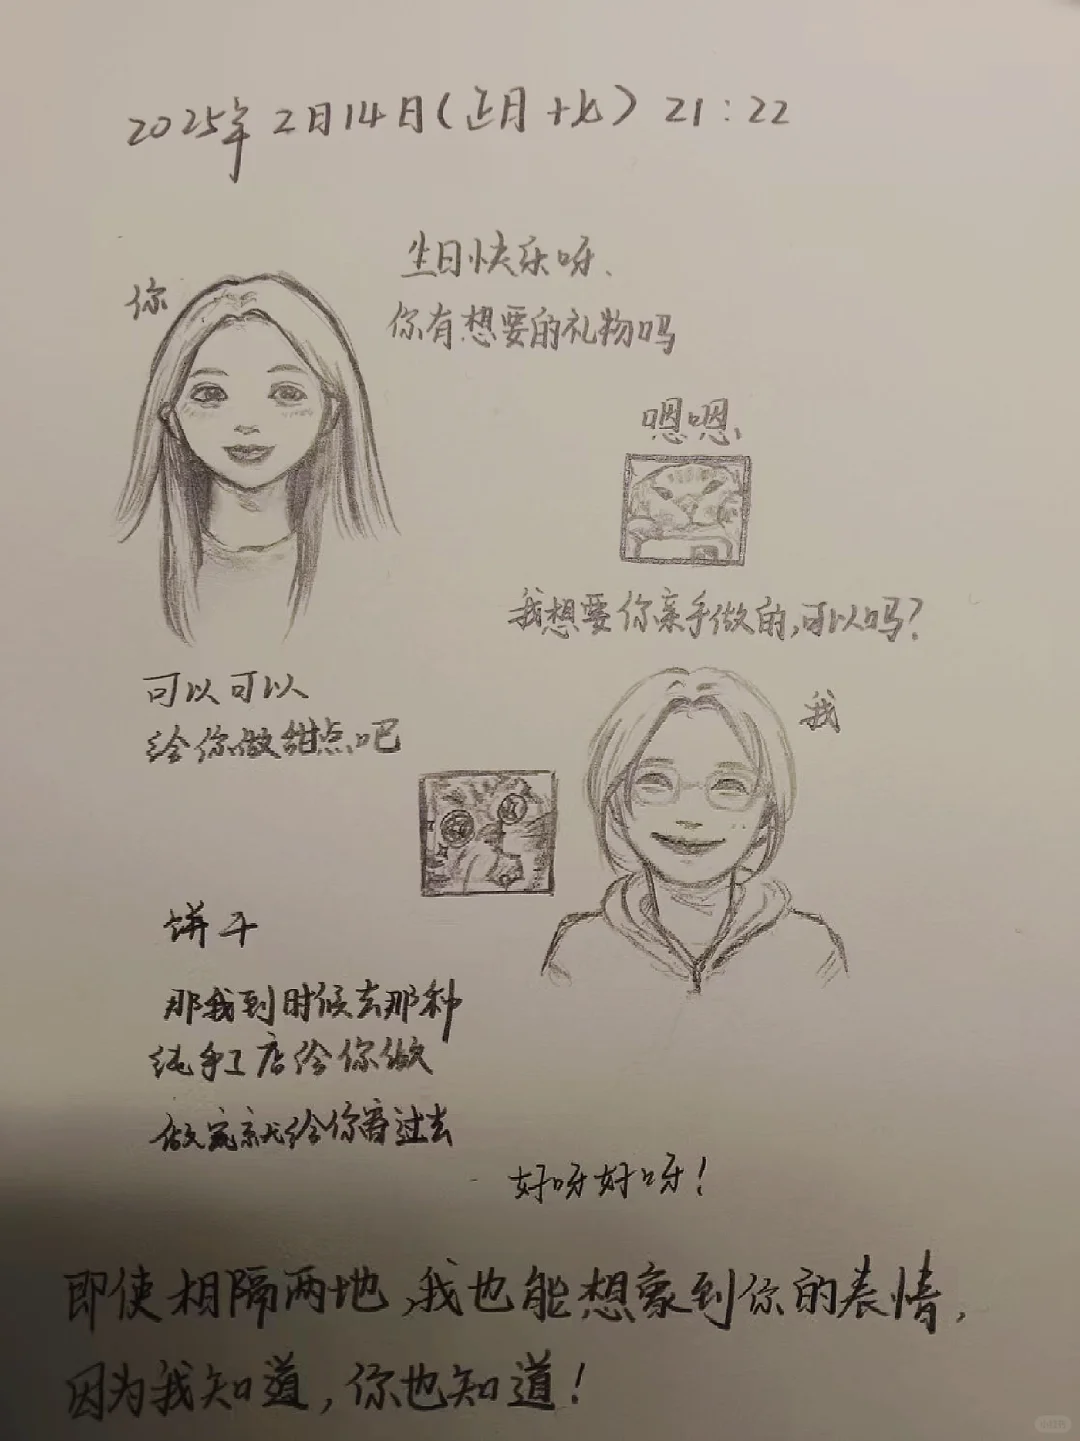 2025年2月14日(正月十七) 21:22
生日快乐呀、
你
你有想要的礼物吗
嗯嗯,
我想要你亲手做的,可以吗?
可以可以
我
给你做甜点吧
饼干
那我到时候去那种
纯手工店给你做
做完就给你寄过去
好呀好呀!
即使相隔两地,我也能想象到你的表情,
因为我知道,你也知道!